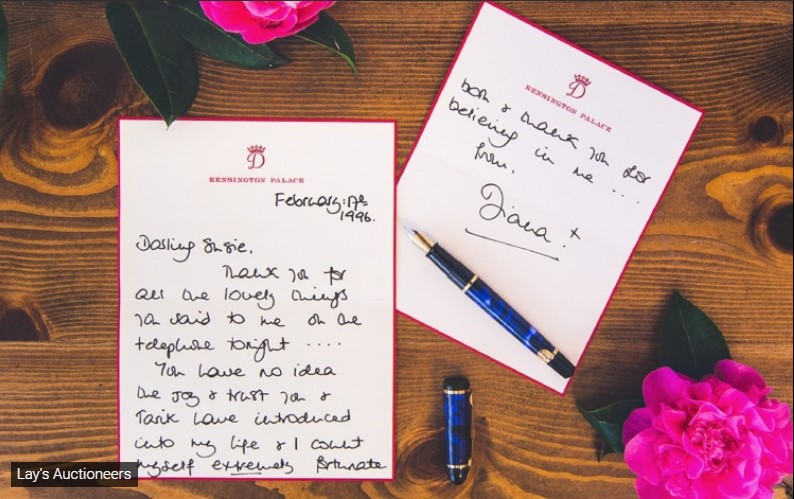 D
KENSINGTON PALACE
February: 17th
1996.
Darling Susie,
Thank you for
all the lovely things
you said to me on the
telephone tonight ....
You have no idea
the joy & trust you &
Tarik have introduced
into my life & I count
myself extremely fortunate
D
KENSINGTON PALACE
both & thank you for
believing in me ...
from,
Diana. +
Lay's Auctioneers